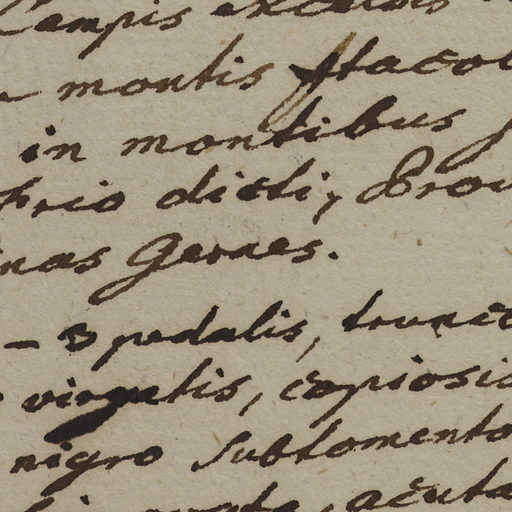 Campis excelsis
montis Itacol
in montibus
Frio dicti, Prov
inas Geraes.
– 3 pedalis, trunc
virgatis, copiosis
nigro subtomento
acuta